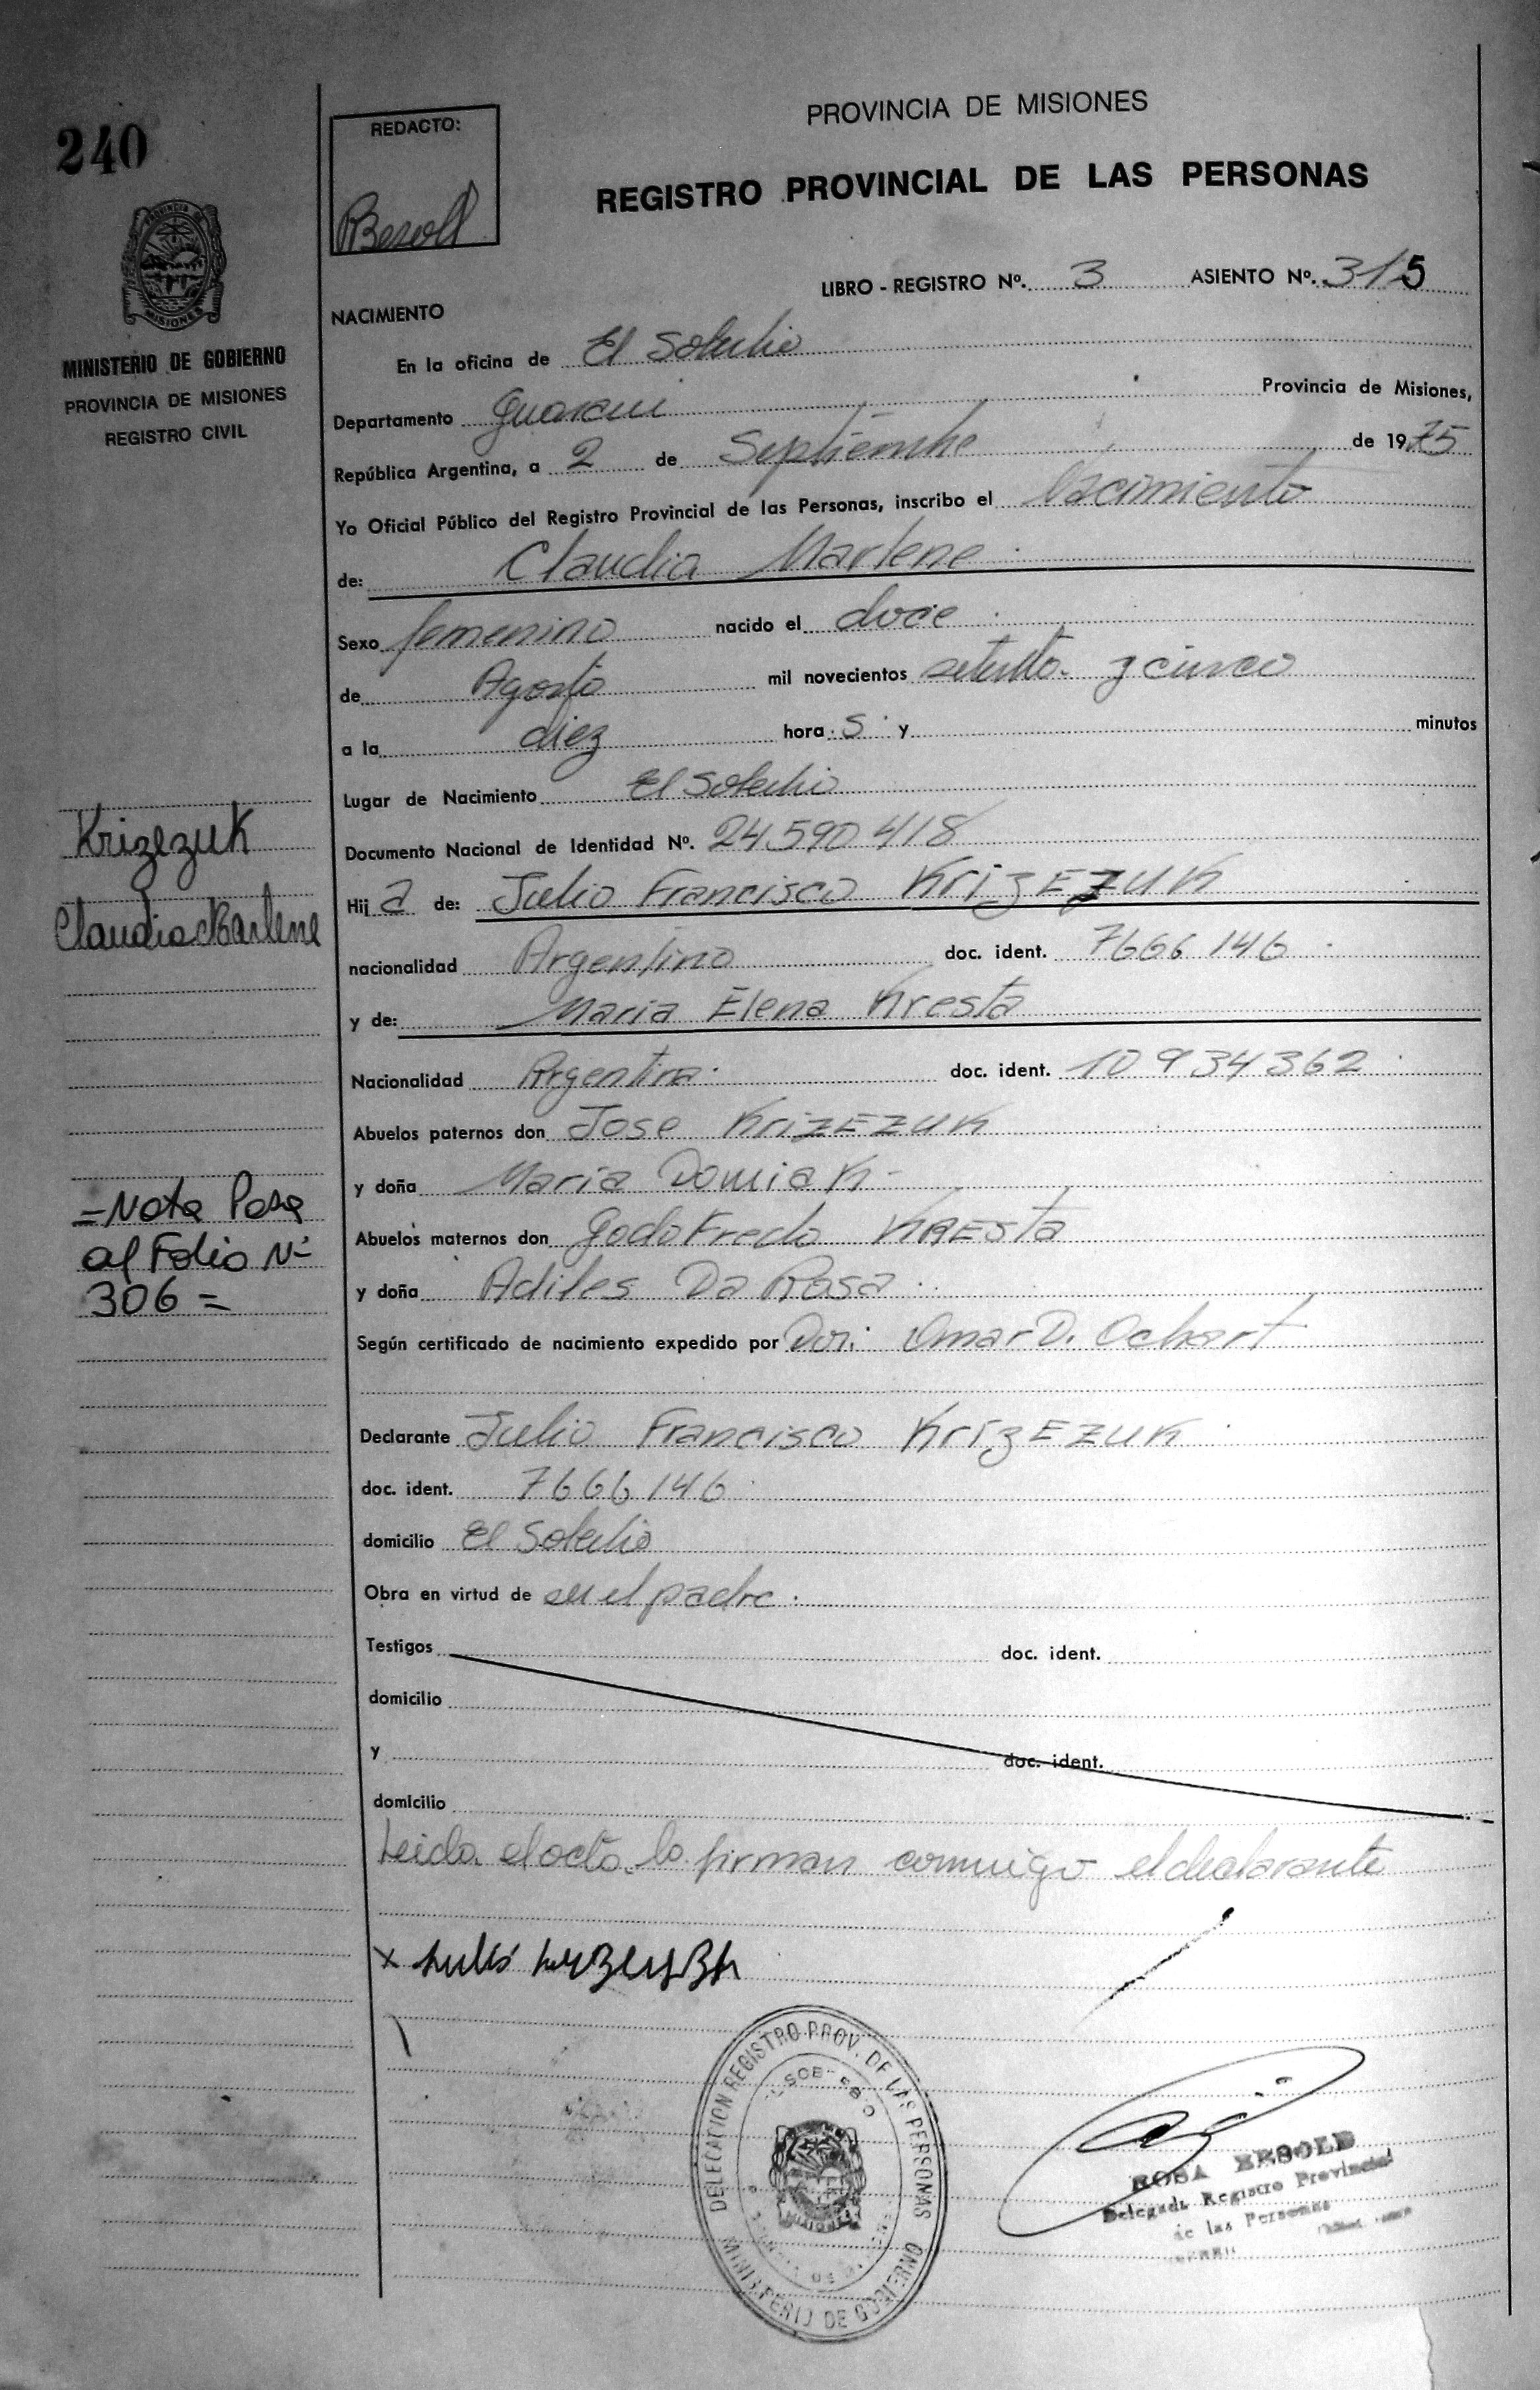 240
PROVINCIA DE
MISIONES
MINISTERIO DE GOBIERNO
PROVINCIA DE MISIONES
REGISTRO CIVIL
REDACTO:
RBesold
PROVINCIA DE MISIONES
REGISTRO PROVINCIAL DE LAS PERSONAS
LIBRO - REGISTRO Nº. 3 ASIENTO Nº. 315
NACIMIENTO
En la oficina de El Soberbio
Departamento Guarani Provincia de Misiones,
República Argentina, a 2 de Septiembre de 1975
Yo Oficial Público del Registro Provincial de las Personas, inscribo el Nacimiento
de: Claudia Marlene
Sexo femenino nacido el doce
de Agosto mil novecientos setenta y cinco
a la diez hora s y minutos
Lugar de Nacimiento El Soberbio
Documento Nacional de Identidad Nº. 24590418
Hij a de: Julio Francisco KrizEZUK
nacionalidad Argentino doc. ident. 7666146
y de: Maria Elena Kresta
Nacionalidad Argentina doc. ident. 10934362
Abuelos paternos don Jose KrizEZUK
y doña Maria Domiak
Abuelos maternos don Godofredo KRESta
y doña Adiles Da Rosa
Según certificado de nacimiento expedido por Omar D. Ochart
Declarante Julio Francisco KrizEZUK
doc. ident. 7666146
domicilio El Soberbio
Obra en virtud de ser el padre.
Testigos doc. ident.
domicilio
y doc. ident.
domicilio
Leida el acta la firman conmigo el declarante
Krizezuk
Claudia Marlene
=Nota Pasa
al Folio Nº
306=
DELEGACION REGISTRO PROV. DE LAS PERSONAS
MINISTERIO DE GOBIERNO
MISIONES
ROSA BESOLD
Delegada Registro Provincial
de las Personas